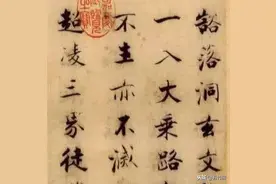 豁落洞玄文
一入大乘路
不生亦不滅
超凌三界徒